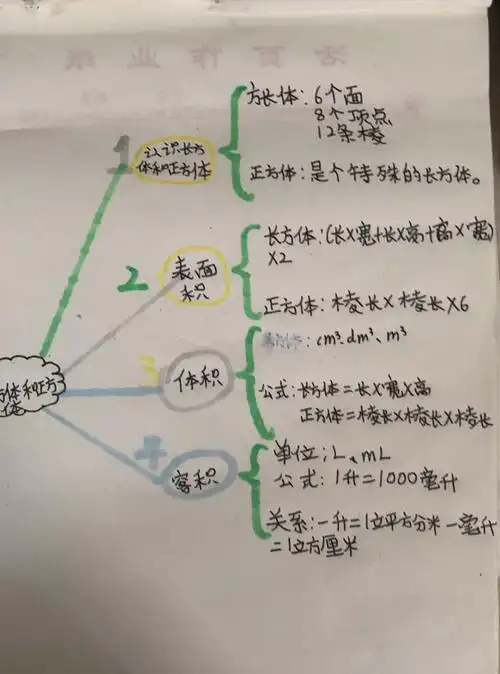 活页作业纸
1
认识长方
体和正方体
方长体：6个面
8个顶点
12条棱
正方体：是个特殊的长方体。
2
表面
积
长方体：(长×宽+长×高+高×宽)
×2
正方体：棱长×棱长×6
3
体积
：cm³.dm³、m³
公式：长方体=长×宽×高
正方体=棱长×棱长×棱长
方体和正方
体
4
容积
单位：L、mL
公式：1升=1000毫升
关系：一升=1立平方分米一毫升
=1立方厘米